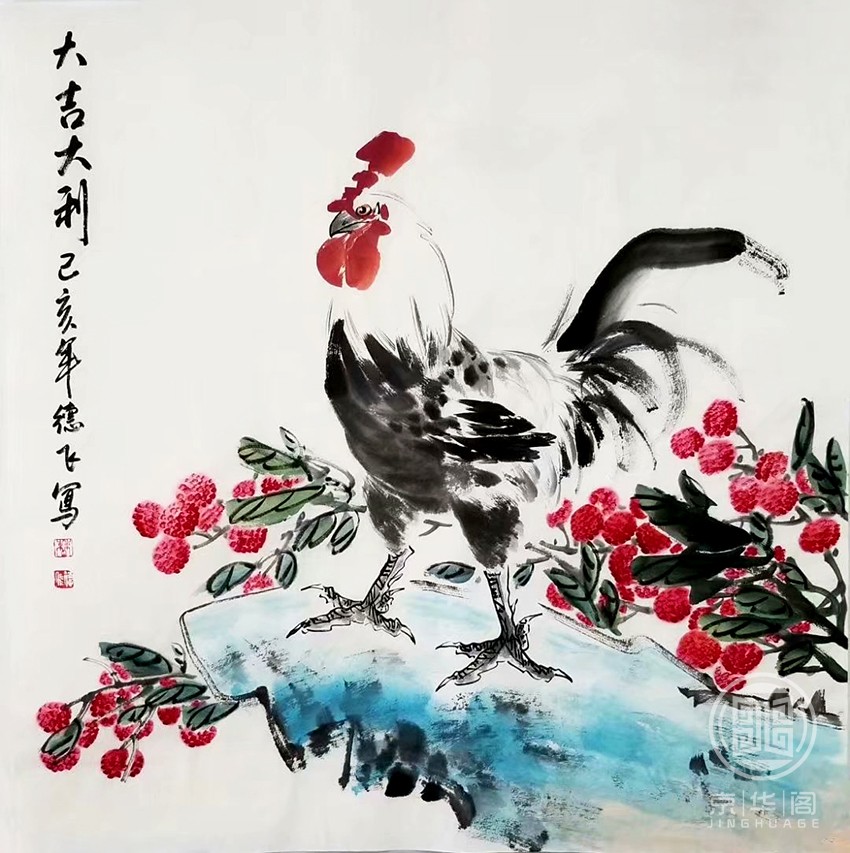 大吉大利己亥年德飞写
京华阁
JINGHUAGE